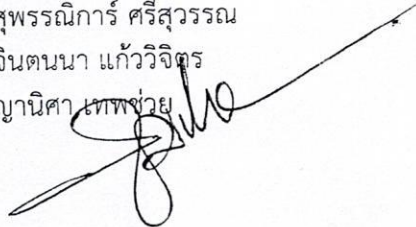 สุพรรณิการ์ ศรีสุวรรณ
จินตนนา แก้ววิจิตร
ญานิศา เทพช่วย